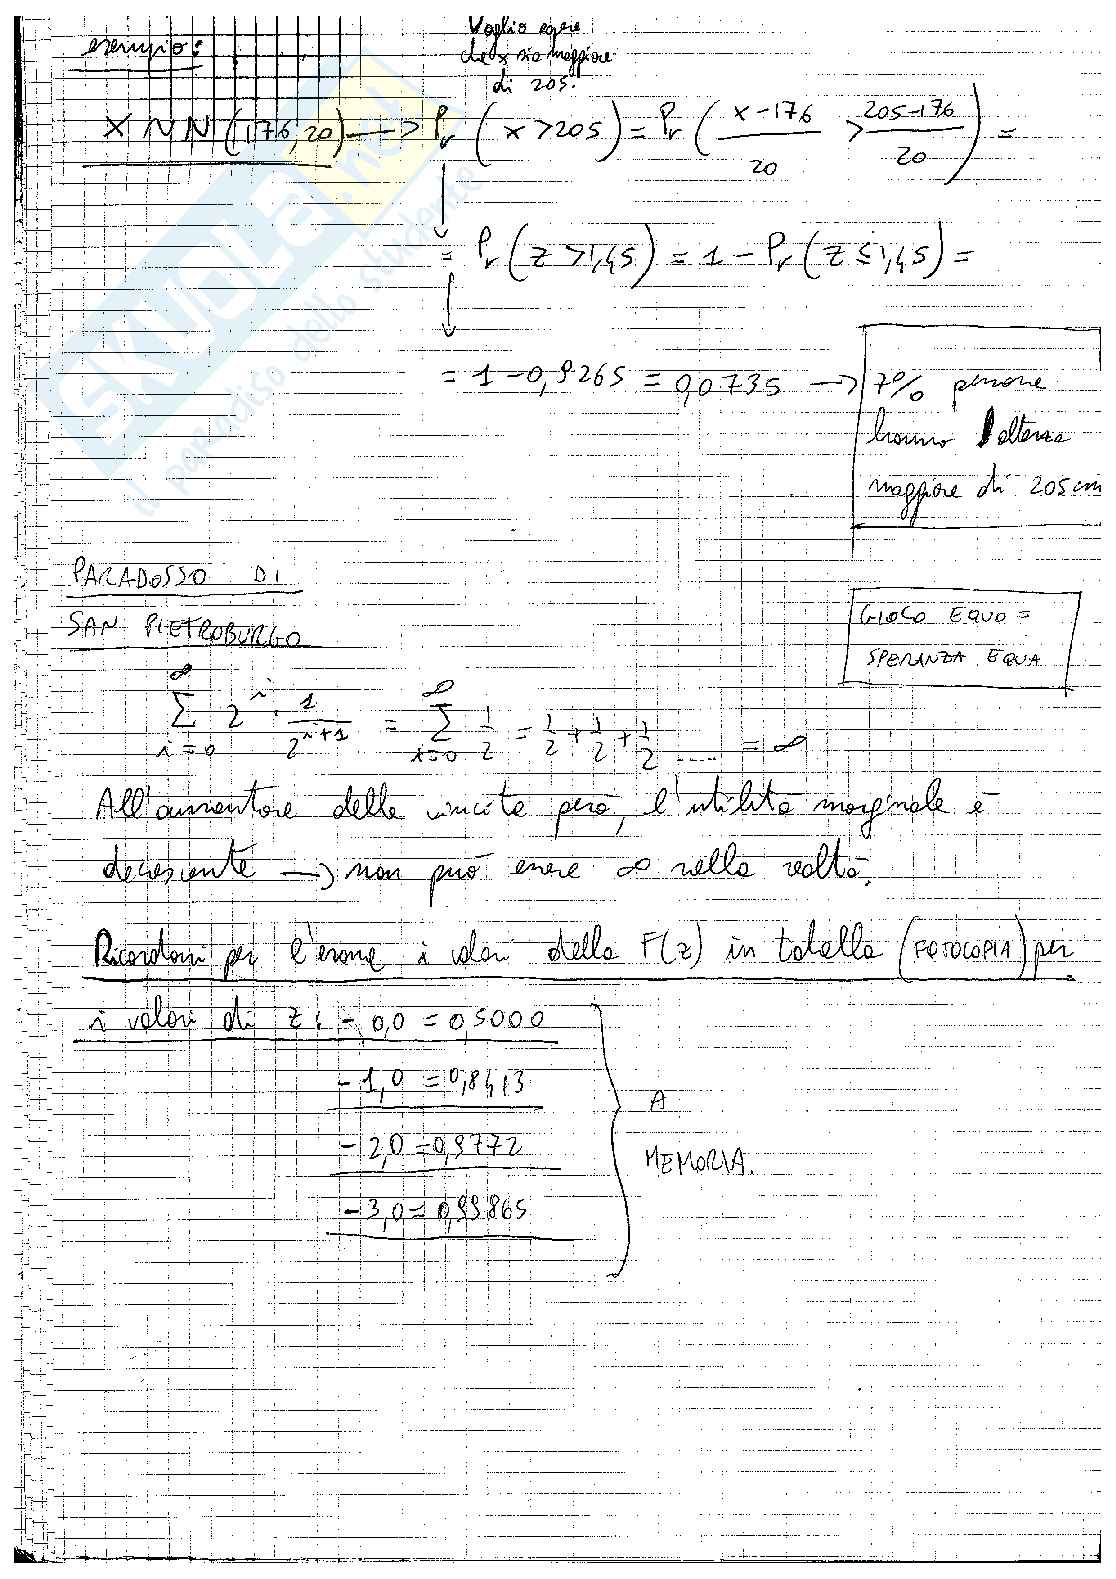 esempio:
Voglio sapere
che x sia maggiore
di 205.
X ~ N (176, 20) → Pr (x > 205) = Pr (x-176/20 > 205-176/20) =
= Pr (z > 1,45) = 1 - Pr (z ≤ 1,45) =
= 1 - 0,9265 = 0,0735 → 7% persone
hanno altezza
maggiore di 205 cm
PARADOSSO DI
SAN PIETROBURGO
GIOCO EQUO =
SPERANZA EQUA
∞ ∑ i=0 2^i · 1/2^(i+1) = ∞ ∑ i=0 1/2 = 1/2 + 1/2 + 1/2 ..... = ∞
All'aumentare della vincita però, l'utilità marginale è
decrescente → non può essere ∞ nella realtà.
Ricordarsi per l'esame i valori della F(z) in tabella (FOTOCOPIA) per
i valori di z: - 0,0 = 0,5000
- 1,0 = 0,8413
- 2,0 = 0,9772
- 3,0 = 0,99865
A
MEMORIA.
SKUOLA.net
il paradiso dello studente